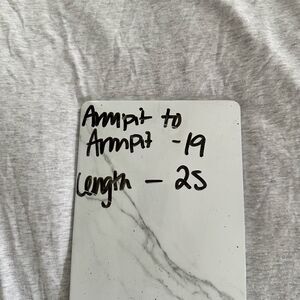 Armpit to
Armpit - 19
Length - 25